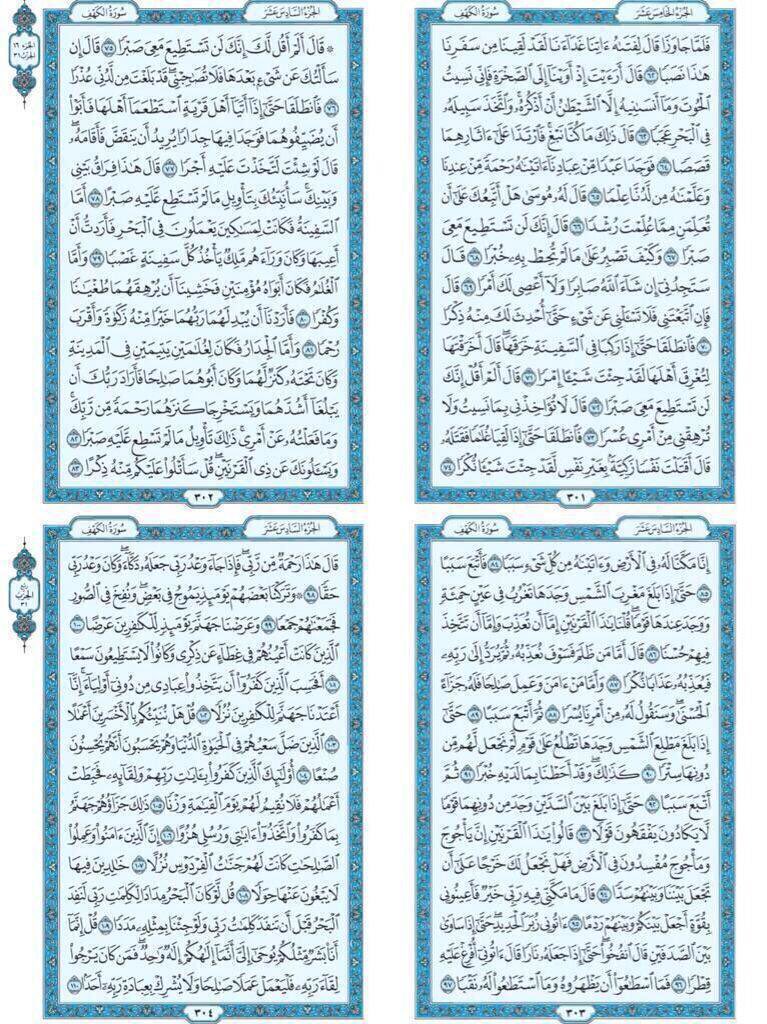 الجزء الخامس عشر
سورة الكهف
فَلَمَّا جَاوَزَا قَالَ لِفَتَىٰهُ ءَاتِنَا غَدَآءَنَا لَقَدْ لَقِينَا مِن سَفَرِنَا
هَٰذَا نَصَبًا ٦٢ قَالَ أَرَءَيْتَ إِذْ أَوَيْنَآ إِلَى ٱلصَّخْرَةِ فَإِنِّي نَسِيتُ
ٱلْحُوتَ وَمَآ أَنسَىٰنِيهُ إِلَّا ٱلشَّيْطَٰنُ أَنْ أَذْكُرَهُۥ وَٱتَّخَذَ سَبِيلَهُۥ
فِي ٱلْبَحْرِ عَجَبًا ٦٣ قَالَ ذَٰلِكَ مَا كُنَّا نَبْغِ فَٱرْتَدَّا عَلَىٰٓ ءَاثَارِهِمَا
قَصَصًا ٦٤ فَوَجَدَا عَبْدًا مِّنْ عِبَادِنَآ ءَاتَيْنَٰهُ رَحْمَةً مِّنْ عِندِنَا
وَعَلَّمْنَٰهُ مِن لَّدُنَّا عِلْمًا ٦٥ قَالَ لَهُۥ مُوسَىٰ هَلْ أَتَّبِعُكَ عَلَىٰٓ أَن
تُعَلِّمَنِ مِمَّا عُلِّمْتَ رُشْدًا ٦٦ قَالَ إِنَّكَ لَن تَسْتَطِيعَ مَعِيَ
صَبْرًا ٦٧ وَكَيْفَ تَصْبِرُ عَلَىٰ مَا لَمْ تُحِطْ بِهِۦ خُبْرًا ٦٨ قَالَ
سَتَجِدُنِيٓ إِن شَآءَ ٱللَّهُ صَابِرًا وَلَآ أَعْصِي لَكَ أَمْرًا ٦٩ قَالَ
فَإِنِ ٱتَّبَعْتَنِي فَلَا تَسْـَٔلْنِي عَن شَيْءٍ حَتَّىٰٓ أُحْدِثَ لَكَ مِنْهُ ذِكْرًا
٧٠ فَٱنطَلَقَا حَتَّىٰٓ إِذَا رَكِبَا فِي ٱلسَّفِينَةِ خَرَقَهَا ۖ قَالَ أَخَرَقْتَهَا
لِتُغْرِقَ أَهْلَهَا لَقَدْ جِئْتَ شَيْـًٔا إِمْرًا ٧١ قَالَ أَلَمْ أَقُلْ إِنَّكَ
لَن تَسْتَطِيعَ مَعِيَ صَبْرًا ٧٢ قَالَ لَا تُؤَاخِذْنِي بِمَا نَسِيتُ وَلَا
تُرْهِقْنِي مِنْ أَمْرِي عُسْرًا ٧٣ فَٱنطَلَقَا حَتَّىٰٓ إِذَا لَقِيَا غُلَٰمًا فَقَتَلَهُۥ
قَالَ أَقَتَلْتَ نَفْسًا زَكِيَّةًۢ بِغَيْرِ نَفْسٍ لَّقَدْ جِئْتَ شَيْـًٔا نُّكْرًا ٧٤
٣٠١
الجزء السادس عشر
سورة الكهف
الجزء ١٦
الحزب ٣١
۞ قَالَ أَلَمْ أَقُل لَّكَ إِنَّكَ لَن تَسْتَطِيعَ مَعِيَ صَبْرًا ٧٥ قَالَ إِن
سَأَلْتُكَ عَن شَيْءٍۭ بَعْدَهَا فَلَا تُصَٰحِبْنِي ۖ قَدْ بَلَغْتَ مِن لَّدُنِّي عُذْرًا
٧٦ فَٱنطَلَقَا حَتَّىٰٓ إِذَآ أَتَيَآ أَهْلَ قَرْيَةٍ ٱسْتَطْعَمَآ أَهْلَهَا فَأَبَوْا۟
أَن يُضَيِّفُوهُمَا فَوَجَدَا فِيهَا جِدَارًا يُرِيدُ أَن يَنقَضَّ فَأَقَامَهُۥ ۖ
قَالَ لَوْ شِئْتَ لَتَّخَذْتَ عَلَيْهِ أَجْرًا ٧٧ قَالَ هَٰذَا فِرَاقُ بَيْنِي
وَبَيْنِكَ ۚ سَأُنَبِّئُكَ بِتَأْوِيلِ مَا لَمْ تَسْتَطِع عَّلَيْهِ صَبْرًا ٧٨ أَمَّا
ٱلسَّفِينَةُ فَكَانَتْ لِمَسَٰكِينَ يَعْمَلُونَ فِي ٱلْبَحْرِ فَأَرَدتُّ أَنْ
أَعِيبَهَا وَكَانَ وَرَآءَهُم مَّلِكٌ يَأْخُذُ كُلَّ سَفِينَةٍ غَصْبًا ٧٩ وَأَمَّا
ٱلْغُلَٰمُ فَكَانَ أَبَوَاهُ مُؤْمِنَيْنِ فَخَشِينَآ أَن يُرْهِقَهُمَا طُغْيَٰنًا
وَكُفْرًا ٨٠ فَأَرَدْنَآ أَن يُبْدِلَهُمَا رَبُّهُمَا خَيْرًا مِّنْهُ زَكَوٰةً وَأَقْرَبَ
رُحْمًا ٨١ وَأَمَّا ٱلْجِدَارُ فَكَانَ لِغُلَٰمَيْنِ يَتِيمَيْنِ فِي ٱلْمَدِينَةِ
وَكَانَ تَحْتَهُۥ كَنزٌ لَّهُمَا وَكَانَ أَبُوهُمَا صَٰلِحًا فَأَرَادَ رَبُّكَ أَن
يَبْلُغَآ أَشُدَّهُمَا وَيَسْتَخْرِجَا كَنزَهُمَا رَحْمَةً مِّن رَّبِّكَ ۚ
وَمَا فَعَلْتُهُۥ عَنْ أَمْرِي ۚ ذَٰلِكَ تَأْوِيلُ مَا لَمْ تَسْطِع عَّلَيْهِ صَبْرًا ٨٢
وَيَسْـَٔلُونَكَ عَن ذِي ٱلْقَرْنَيْنِ ۖ قُلْ سَأَتْلُوا۟ عَلَيْكُم مِّنْهُ ذِكْرًا ٨٣
٣٠٢
الجزء السادس عشر
سورة الكهف
إِنَّا مَكَّنَّا لَهُۥ فِي ٱلْأَرْضِ وَءَاتَيْنَٰهُ مِن كُلِّ شَيْءٍ سَبَبًا ٨٤ فَأَتْبَعَ سَبَبًا
٨٥ حَتَّىٰٓ إِذَا بَلَغَ مَغْرِبَ ٱلشَّمْسِ وَجَدَهَا تَغْرُبُ فِي عَيْنٍ حَمِئَةٍ
وَوَجَدَ عِندَهَا قَوْمًا ۗ قُلْنَا يَٰذَا ٱلْقَرْنَيْنِ إِمَّآ أَن تُعَذِّبَ وَإِمَّآ أَن تَتَّخِذَ
فِيهِمْ حُسْنًا ٨٦ قَالَ أَمَّا مَن ظَلَمَ فَسَوْفَ نُعَذِّبُهُۥ ثُمَّ يُرَدُّ إِلَىٰ رَبِّهِۦ
فَيُعَذِّبُهُۥ عَذَابًا نُّكْرًا ٨٧ وَأَمَّا مَنْ ءَامَنَ وَعَمِلَ صَٰلِحًا فَلَهُۥ جَزَآءً
ٱلْحُسْنَىٰ ۖ وَسَنَقُولُ لَهُۥ مِنْ أَمْرِنَا يُسْرًا ٨٨ ثُمَّ أَتْبَعَ سَبَبًا ٨٩ حَتَّىٰٓ
إِذَا بَلَغَ مَطْلِعَ ٱلشَّمْسِ وَجَدَهَا تَطْلُعُ عَلَىٰ قَوْمٍ لَّمْ نَجْعَل لَّهُم مِّن
دُونِهَا سِتْرًا ٩٠ كَذَٰلِكَ وَقَدْ أَحَطْنَا بِمَا لَدَيْهِ خُبْرًا ٩١ ثُمَّ
أَتْبَعَ سَبَبًا ٩٢ حَتَّىٰٓ إِذَا بَلَغَ بَيْنَ ٱلسَّدَّيْنِ وَجَدَ مِن دُونِهِمَا قَوْمًا
لَّا يَكَادُونَ يَفْقَهُونَ قَوْلًا ٩٣ قَالُوا۟ يَٰذَا ٱلْقَرْنَيْنِ إِنَّ يَأْجُوجَ
وَمَأْجُوجَ مُفْسِدُونَ فِي ٱلْأَرْضِ فَهَلْ نَجْعَلُ لَكَ خَرْجًا عَلَىٰٓ أَن
تَجْعَلَ بَيْنَنَا وَبَيْنَهُمْ سَدًّا ٩٤ قَالَ مَا مَكَّنِّي فِيهِ رَبِّي خَيْرٌ فَأَعِينُونِي
بِقُوَّةٍ أَجْعَلْ بَيْنَكُمْ وَبَيْنَهُمْ رَدْمًا ٩٥ ءَاتُونِي زُبَرَ ٱلْحَدِيدِ ۖ حَتَّىٰٓ إِذَا سَاوَىٰ
بَيْنَ ٱلصَّدَفَيْنِ قَالَ ٱنفُخُوا۟ ۖ حَتَّىٰٓ إِذَا جَعَلَهُۥ نَارًا قَالَ ءَاتُونِيٓ أُفْرِغْ عَلَيْهِ
قِطْرًا ٩٦ فَمَا ٱسْطَٰعُوٓا۟ أَن يَظْهَرُوهُ وَمَا ٱسْتَطَٰعُوا۟ لَهُۥ نَقْبًا ٩٧
٣٠٣
الجزء السادس عشر
سورة الكهف
ربع
الحزب
٣١
قَالَ هَٰذَا رَحْمَةٌ مِّن رَّبِّي ۖ فَإِذَا جَآءَ وَعْدُ رَبِّي جَعَلَهُۥ دَكَّآءَ ۖ وَكَانَ وَعْدُ رَبِّي
حَقًّا ٩٨ ۞ وَتَرَكْنَا بَعْضَهُمْ يَوْمَئِذٍ يَمُوجُ فِي بَعْضٍ ۖ وَنُفِخَ فِي ٱلصُّورِ
فَجَمَعْنَٰهُمْ جَمْعًا ٩٩ وَعَرَضْنَا جَهَنَّمَ يَوْمَئِذٍ لِّلْكَٰفِرِينَ عَرْضًا ١٠٠
ٱلَّذِينَ كَانَتْ أَعْيُنُهُمْ فِي غِطَآءٍ عَن ذِكْرِي وَكَانُوا۟ لَا يَسْتَطِيعُونَ سَمْعًا
١٠١ أَفَحَسِبَ ٱلَّذِينَ كَفَرُوٓا۟ أَن يَتَّخِذُوا۟ عِبَادِي مِن دُونِيٓ أَوْلِيَآءَ ۚ إِنَّآ
أَعْتَدْنَا جَهَنَّمَ لِلْكَٰفِرِينَ نُزُلًا ١٠٢ قُلْ هَلْ نُنَبِّئُكُم بِٱلْأَخْسَرِينَ أَعْمَٰلًا
١٠٣ ٱلَّذِينَ ضَلَّ سَعْيُهُمْ فِي ٱلْحَيَوٰةِ ٱلدُّنْيَا وَهُمْ يَحْسَبُونَ أَنَّهُمْ يُحْسِنُونَ
صُنْعًا ١٠٤ أُو۟لَٰٓئِكَ ٱلَّذِينَ كَفَرُوا۟ بِـَٔايَٰتِ رَبِّهِمْ وَلِقَآئِهِۦ فَحَبِطَتْ
أَعْمَٰلُهُمْ فَلَا نُقِيمُ لَهُمْ يَوْمَ ٱلْقِيَٰمَةِ وَزْنًا ١٠٥ ذَٰلِكَ جَزَآؤُهُمْ جَهَنَّمُ
بِمَا كَفَرُوا۟ وَٱتَّخَذُوٓا۟ ءَايَٰتِي وَرُسُلِي هُزُوًا ١٠٦ إِنَّ ٱلَّذِينَ ءَامَنُوا۟ وَعَمِلُوا۟
ٱلصَّٰلِحَٰتِ كَانَتْ لَهُمْ جَنَّٰتُ ٱلْفِرْدَوْسِ نُزُلًا ١٠٧ خَٰلِدِينَ فِيهَا
لَا يَبْغُونَ عَنْهَا حِوَلًا ١٠٨ قُل لَّوْ كَانَ ٱلْبَحْرُ مِدَادًا لِّكَلِمَٰتِ رَبِّي لَنَفِدَ
ٱلْبَحْرُ قَبْلَ أَن تَنفَدَ كَلِمَٰتُ رَبِّي وَلَوْ جِئْنَا بِمِثْلِهِۦ مَدَدًا ١٠٩ قُلْ إِنَّمَآ
أَنَا۠ بَشَرٌ مِّثْلُكُمْ يُوحَىٰٓ إِلَيَّ أَنَّمَآ إِلَٰهُكُمْ إِلَٰهٌ وَٰحِدٌ ۖ فَمَن كَانَ يَرْجُوا۟
لِقَآءَ رَبِّهِۦ فَلْيَعْمَلْ عَمَلًا صَٰلِحًا وَلَا يُشْرِكْ بِعِبَادَةِ رَبِّهِۦٓ أَحَدًۢا ١١٠
٣٠٤